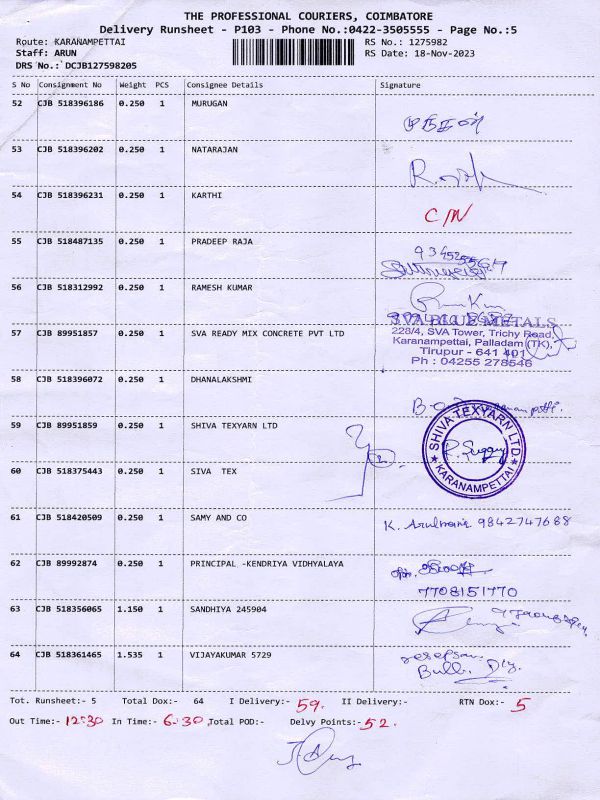 THE PROFESSIONAL COURIERS, COIMBATORE
Delivery Runsheet - P103 - Phone No.:0422-3505555 - Page No.:5
Route: KARANAMPETTAI RS No.: 1275982
Staff: ARUN RS Date: 18-Nov-2023
DRS No.: DCJB127598205
S No Consignment No Weight PCS Consignee Details Signature
52 CJB 518396186 0.250 1 MURUGAN
53 CJB 518396202 0.250 1 NATARAJAN
54 CJB 518396231 0.250 1 KARTHI C/N
55 CJB 518487135 0.250 1 PRADEEP RAJA
56 CJB 518312992 0.250 1 RAMESH KUMAR
SVA BLUE METALS
57 CJB 89951857 0.250 1 SVA READY MIX CONCRETE PVT LTD 228/4, SVA Tower, Trichy Road,
Karanampettai, Palladam (TK),
Tirupur - 641 401
Ph : 04255 278546
58 CJB 518396072 0.250 1 DHANALAKSHMI
59 CJB 89951859 0.250 1 SHIVA TEXYARN LTD SHIVA TEXYARN LTD.
★ KARANAMPETTAI ★
60 CJB 518375443 0.250 1 SIVA TEX
61 CJB 518420509 0.250 1 SAMY AND CO K. Arulmani 9842747688
62 CJB 89992874 0.250 1 PRINCIPAL -KENDRIYA VIDHYALAYA
7708151770
63 CJB 518356065 1.150 1 SANDHIYA 245904
64 CJB 518361465 1.535 1 VIJAYAKUMAR 5729
Tot. Runsheet:- 5 Total Dox:- 64 I Delivery:- 59. II Delivery:- RTN Dox:- 5
Out Time:- 12:30 In Time:- 6:30 Total POD:- Delvy Points:- 52.